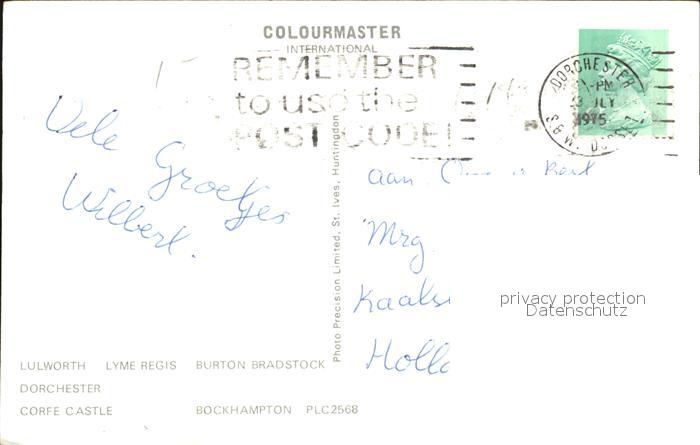 COLOURMASTER
INTERNATIONAL
REMEMBER
to use the
POST CODE!
DORCHESTER
-PM
JLY
1975
Vele Groetjes
Wilbert.
Photo Precision Limited, St. Ives, Huntingdon
aan
Mrg
privacy protection
Datenschutz
LULWORTH LYME REGIS BURTON BRADSTOCK
DORCHESTER
CORFE CASTLE BOCKHAMPTON PLC2568